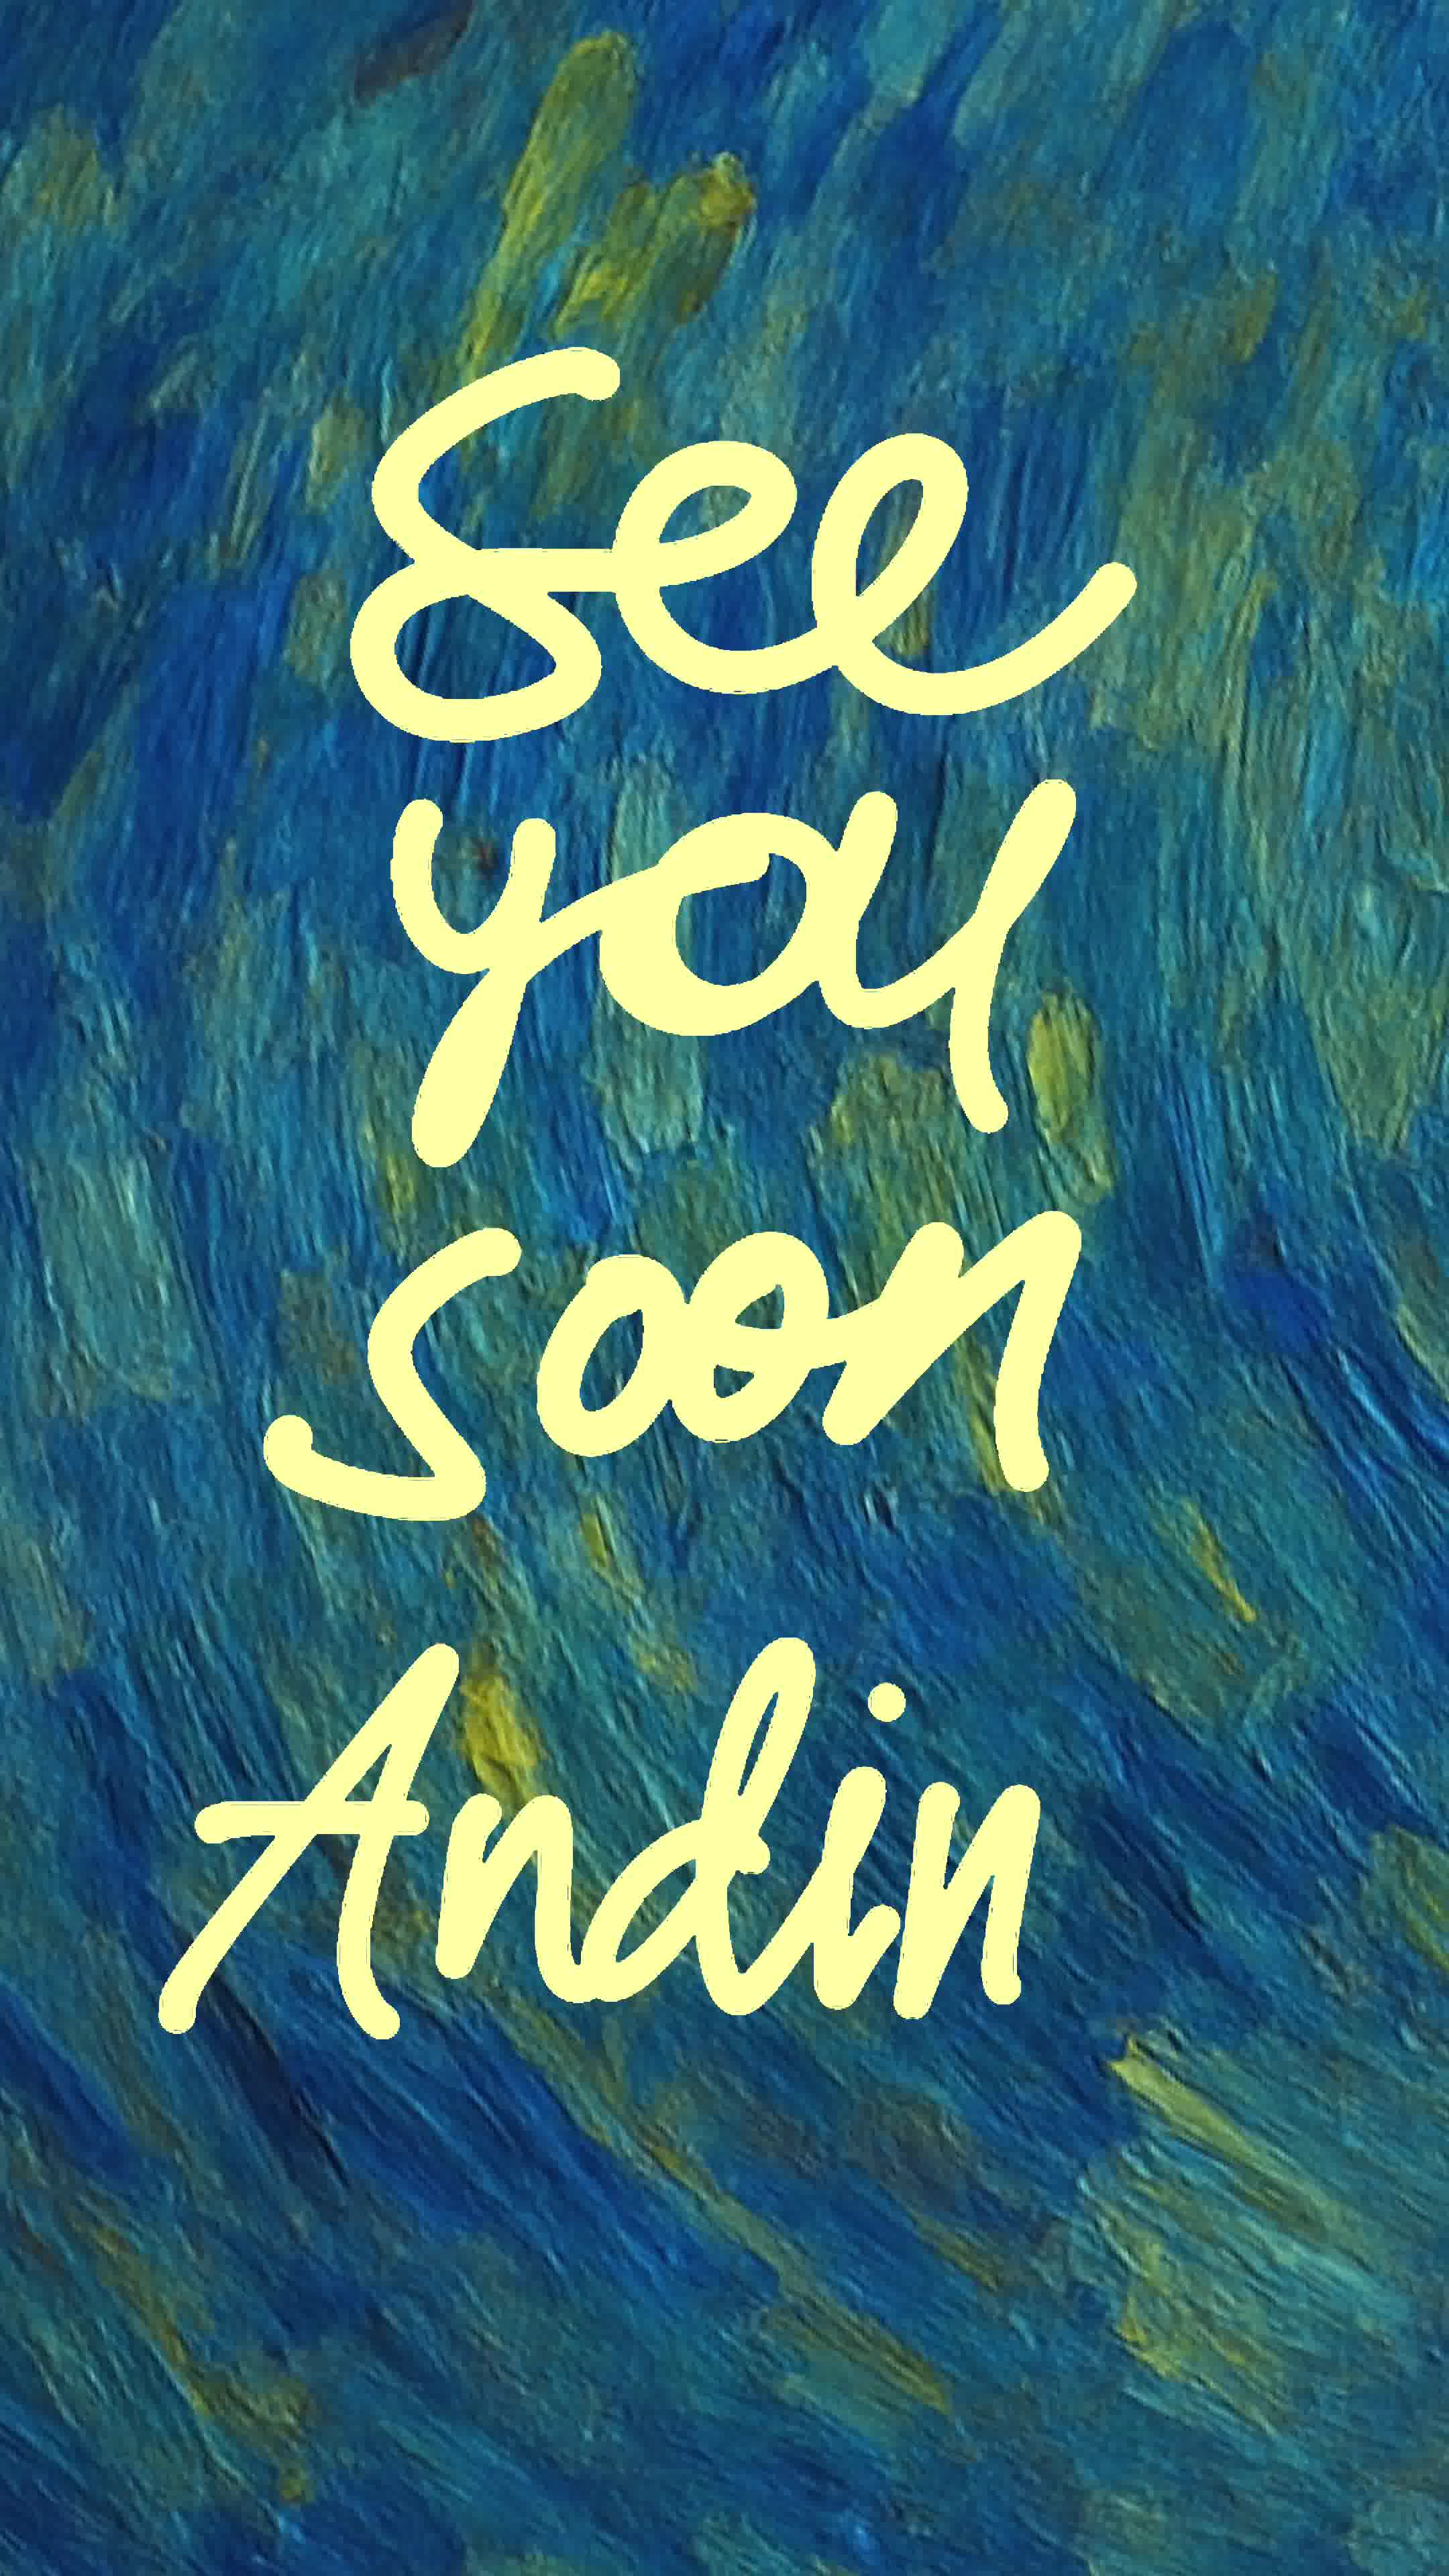 See
you
soon
Andin